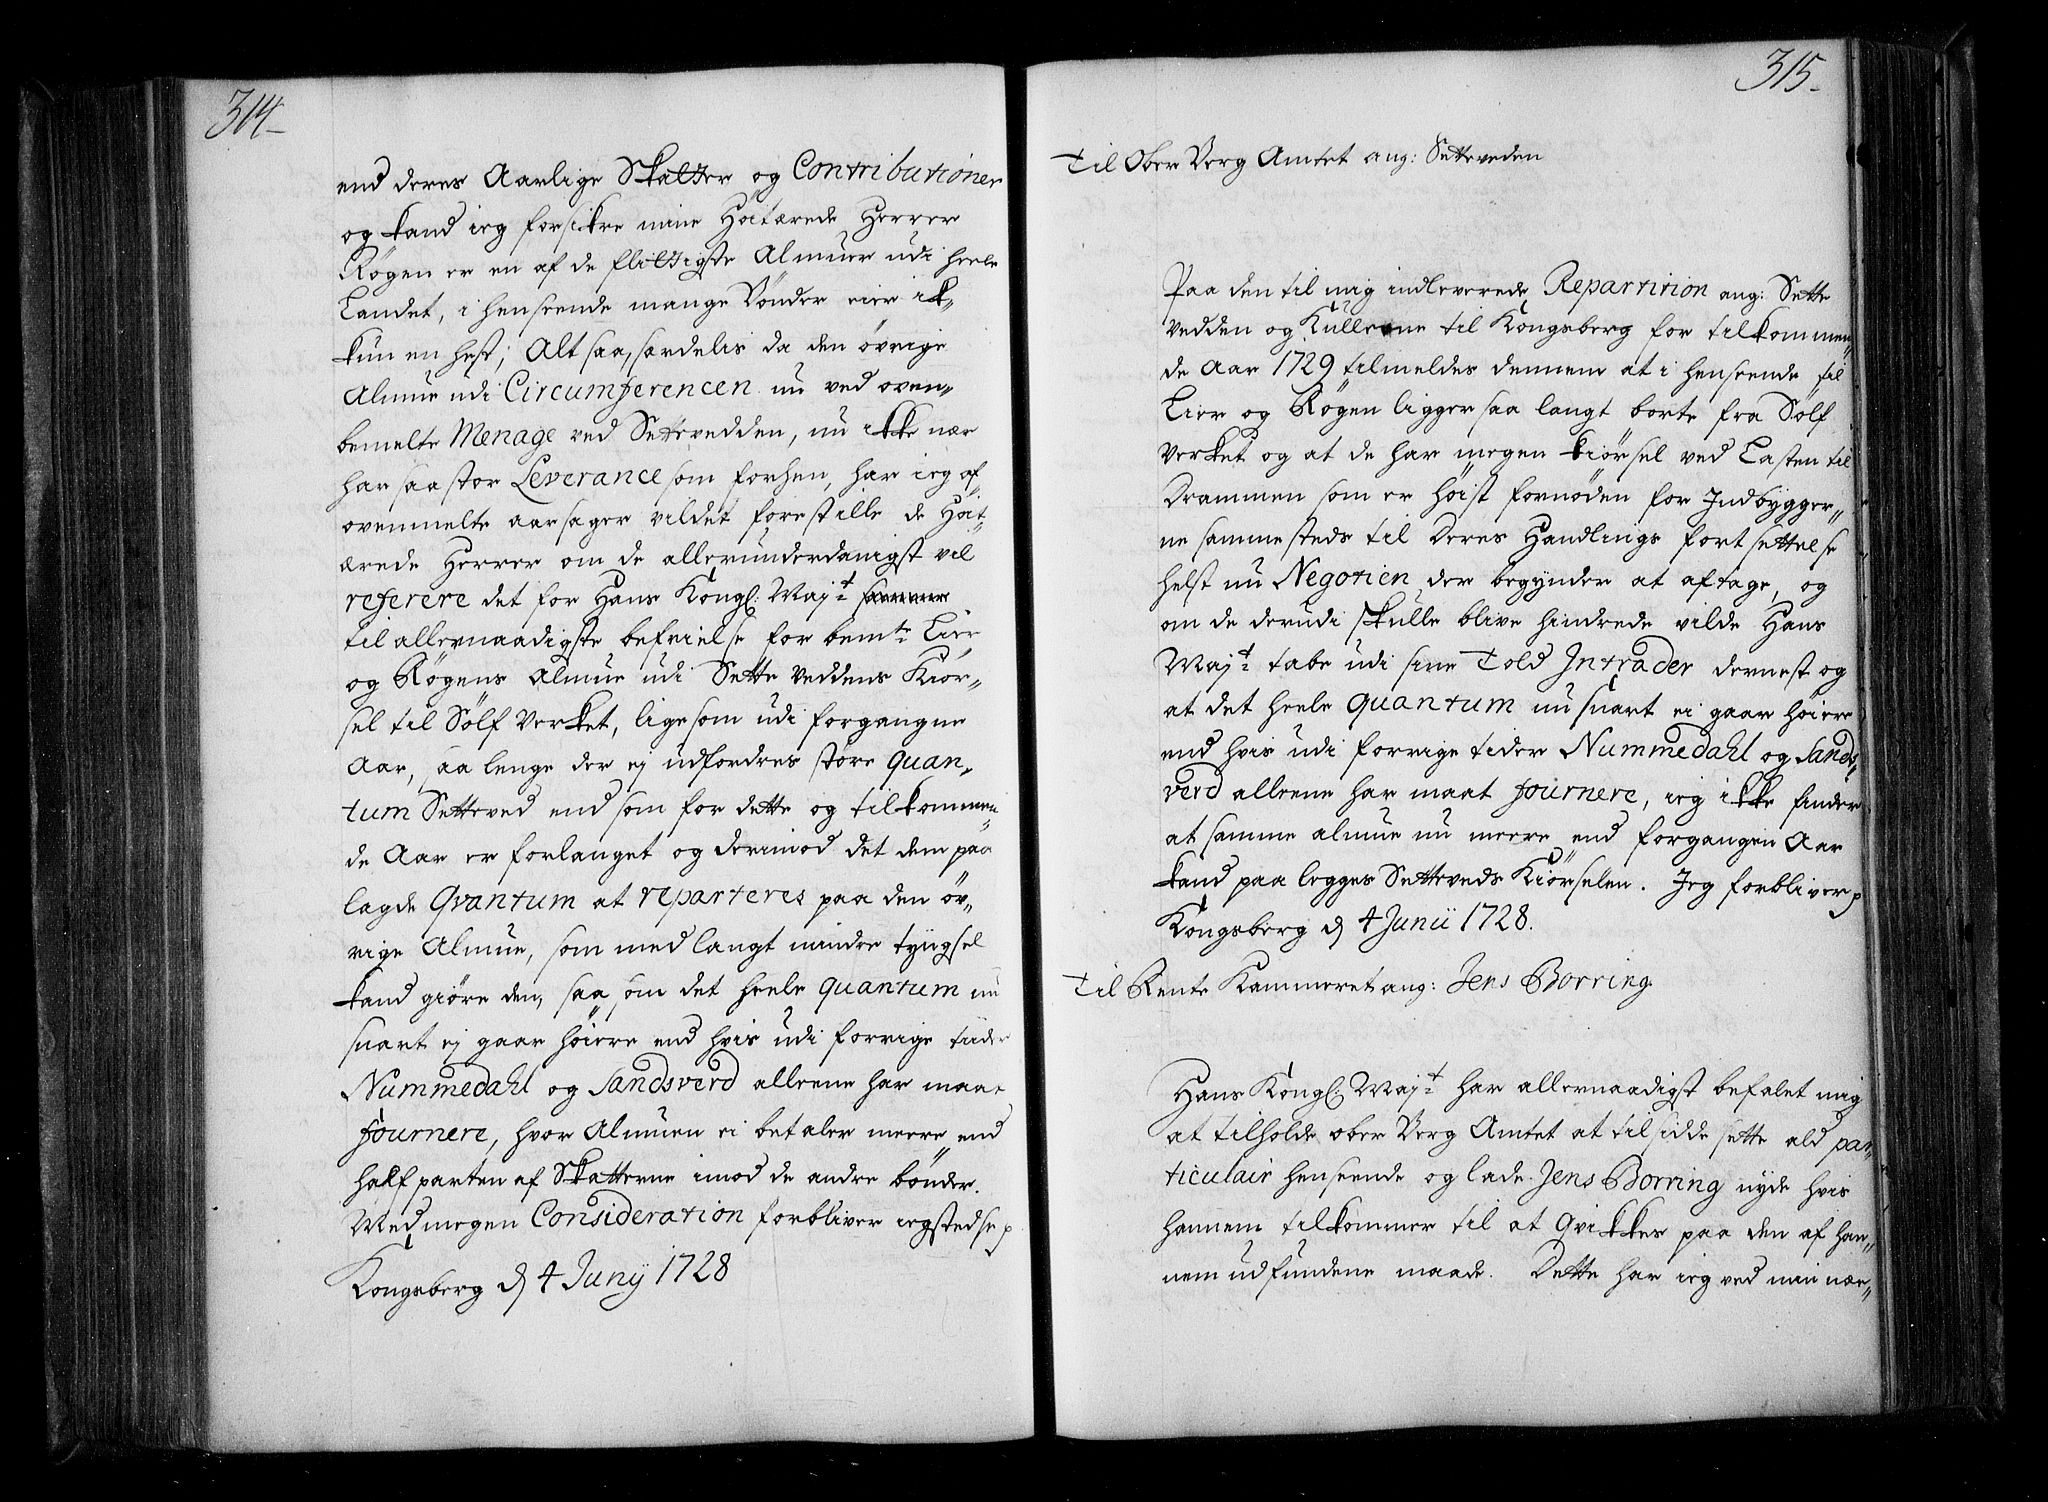 314-
end deres Aarlige Skatter og Contributioner
og kand ieg forsikre mine Høitærede Herrer
Røgen er en af de flittigste Almuer udi heele
Landet, i henseende mange Bønder eier ik-
kun en hest; Alt saa, særdelis da den øvrige
Almue udi Circumferencen nu ved oven-
bemelte Menage ved Settevedden, nu ikke nær
har saa stor Leverance som forhen, har ieg af
ovenmelte aarsager vildet forestille de Høit-
ærede Herrer om de allerunderdanigst vil
referere det for Hans Kongl: Maj:t
til allernaadigste befrielse for bem:te Lier
og Røgens Almue udi Sette Veddens Kiør-
sel til Sølf Verket, ligesom udi forgangne
Aar, saa lenge der ej udfordres støre quan-
tum Setteved end som for dette og tilkommen-
de Aar er forlanget og derimod det dem paa
lagde Qvantum at reparteres paa den øv-
rige Almue, som med langt mindre tyngsel
kand giøre den, saa som det heele quantum nu
snart ej gaar høiere end hvis udi forrige tider
Nummedahl og Sandsverd alleene har maat
fournere, hvor Almuen ei betaler meere end
half parten af Skatterne imod de andre bønder.
Med megen Consideration forbliver ieg stedse p
Kongsberg d 4 Junij 1728
315-
Til Ober Berg Amtet ang: Setteveden
Paa den til mig indleverede Repartition ang: Sette
Vedden og Kullene til Kongsberg for tilkommen-
de Aar 1729 tilmeldes dennem at i henseende til
Lier og Røgen ligger saa langt borte fra Sølf
Verket og at de har megen kiørsel ved Lasten til
Drammen som er høist fornøden for Indbygger-
ne sammesteds til deres Handlings fortsettelse
helst nu Negotien der begynder at aftage, og
om de derudi skulle blive hindrede vilde Hans
Maj:t tabe udi sine Told Intrader dernest og
at det heele quantum nu snart ei gaar høiere
end hvis udi forrige tider Nummedahl og Sands-
verd alleene har maat fournere, ieg ikke finder
at samme almue nu meere end forgangen Aar
kand paa legges Setteveds Kiørselen. Jeg forbliver p
Kongsberg d 4 Junii 1728.
Til Rente Kammeret ang: Jens Borring.
Hans Kongl: Maj:t har allernaadigst befalet mig
at tilholde ober Berg Amtet at tilsidde sette ald par-
ticulair henseende og lade Jens Borring nyde hvis
hannem tilkommer til at qvikkes paa den af han-
nem udfundene maade. Dette har ieg ved min nær-